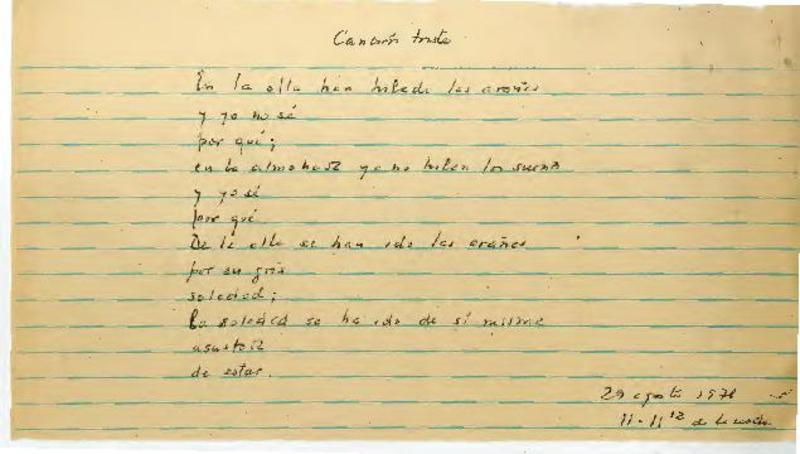 Canción triste
En la olla han hilado las arañas
y yo no sé
por qué;
en la almohada ya no hilan los sueños
y yo sé
por qué
De la olla se han ido las arañas
por su gris
soledad;
La soledad se ha ido de sí misma
asustada
de estar.
29 agosto 197
11-11 12 de la noche